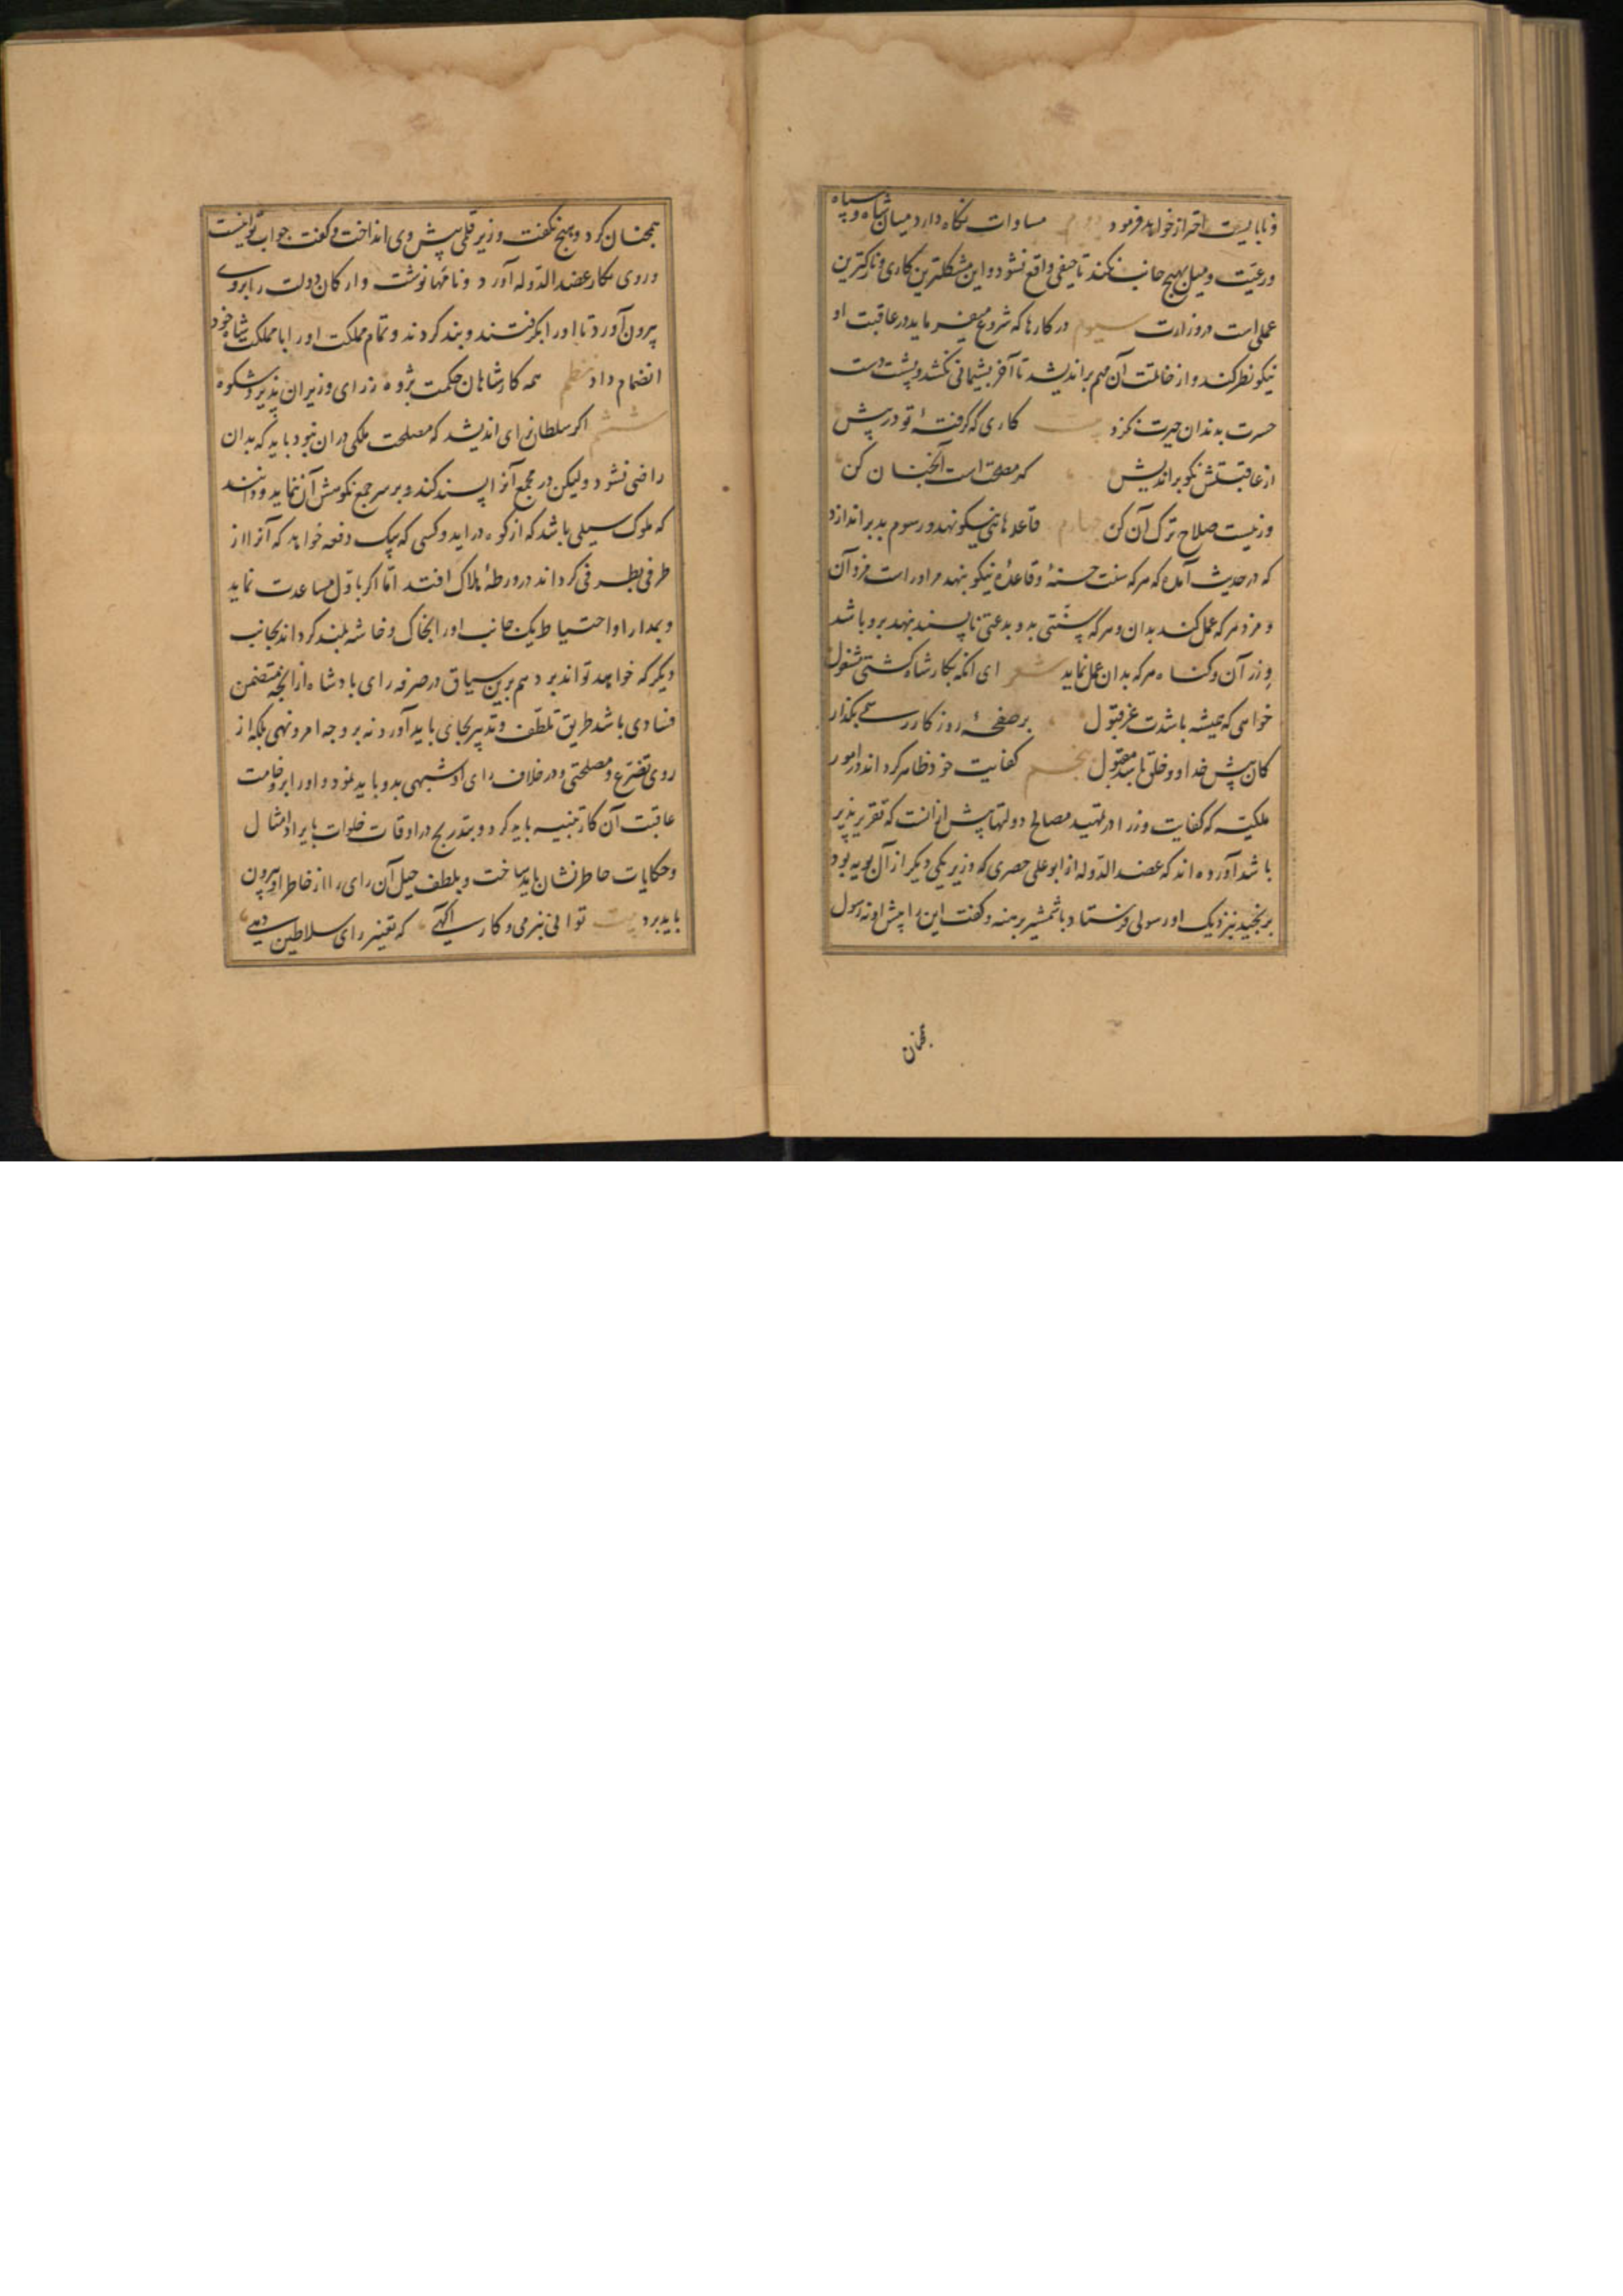 و نابایست احتراز خواهد فرمود دوم مساوات نگاه دارد میان شاه و سپاه
و رعیّت و میل بهیچ جانب نکند تا حیفی واقع نشود و این مشکلترین کاری و نازکترین
عملی است در وزارت سیوم در کارها که شروع میفرماید در عاقبت او
نیکو نظر کند و از خاتمت آن مهم براندیشد تا آخر پشیمانی نکشد و پشت دست
حسرت بدندان حیرت نگزد بیت کاری که گرفتهٔ تو در پیش
از عاقبتش نکو براندیش کر مصلحت است آنچنان کن
ور نیست صلاح ترک آن کن چهارم قاعدهای نیکو نهد و رسوم بد براندازد
که در حدیث آمده که هر که سنت حسنهٔ و قاعدهٔ نیکو بنهد مر او راست مزد آن
و مزد هر که عمل کند بدان و هر که سنّتی بد و بدعتی ناپسند نهد برو باشد
وزر آن و کناه هر که بدان عمل نماید شعر ای انکه بکار شاه کشتی مشغول
خواهی که همیشه باشدت عز قبول بر صفحهٔ روزکار رسمی بکذار
کان پیش خدا و خلق باشد مقبول پنجم کفایت خود ظاهر کرداند در امور
ملکیّه که کفایت وزرا در تمهید مصالح دولتها پیش از انست که تقریر پذیر
باشد آورده اند که عضد الدّوله از ابو علی حصری که وزیر یکی دیکر از آل بویه بود
برنجید نزدیک او رسولی فرستاد با شمشیر برهنه و کفت این را پیش او نه رسول
همچنان
همچنان کرد و هیچ نکفت وزیر قلمی پیش وی انداخت و کفت جواب تو اینست
و روی بکار عضد الدّوله آورد و نامها نوشت و ارکان دولت را بروی
بیرون آورد تا او را بکرفتند و بند کردند و تمام مملکت او را با مملکت شاه خود
انضمام داد نظم همه کار شاهان حکمت پژوه ز رای وزیران پذیرد شکوه
ششم اکر سلطان رای اندیشد که مصلحت ملکی در ان نبود باید که بدان
راضی نشود ولیکن در مجمع آنرا پسند کند و بر سر جمع نکوهش آن ننماید و دانند
که ملوک سیلی باشد که از کوه در اید و کسی که بیک دفعه خواهد که آنرا از
طرفی بطرفی کرداند در ورطهٔ هلاک افتد امّا اکر باوّل مساعدت نماید
و بمدارا و احتیاط یک جانب او را بخاک و خاشه بلند کرداند بجانب
دیکر که خواهد تواند برد هم برین سیاق در صرف رای پادشاه از انچه متضمن
فسادی باشد طریق تلطّف و تدبیر بجای باید آورد نه بر وجه امر و نهی بلکه از
روی تضرّع و مصلحتی و در خلاف رای او شبهی بدو باید نمود و او را بر وخامت
عاقبت آن کار تنبیه باید کرد و بتدریج در اوقات خلوات بایراد امثال
و حکایات خاطر نشان باید ساخت و بلطف حیل آن رای را از خاطر او بیرون
باید برد بیت توانی بنرمی و کار آکهی که تغییر رای سلاطین دهی